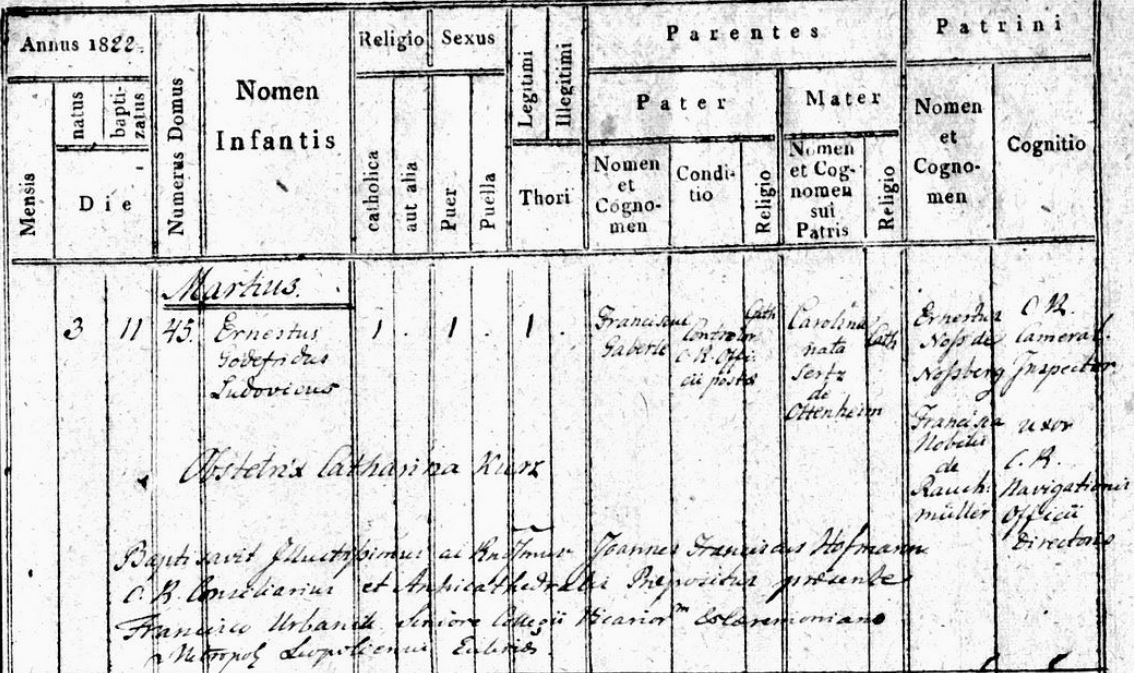 Annus 1822.
Religio
Sexus
Legitimi
Illegitimi
Parentes
Patrini
Mensis
natus
bapti-
zatus
Die
Numerus Domus
Nomen
Infantis
catholica
aut alia
Puer
Puella
Thori
Pater
Mater
Nomen
et
Cogno-
men
Condi-
tio
Religio
Nomen
et Cog-
nomen
sui
Patris
Religio
Nomen
et
Cogno-
men
Cognitio
Martius.
3 11 45. Ernestus
Godefridus
Ludovicus
1 . 1 . 1 .
Franciscus
Gaberle
Controlor
C. R. Offi
cii postae
Cath
Carolina
nata
Sertz
de
Ottenheim
Cath
Ernestus
Noss de
Nossberg
C. R.
Cameral.
Inspector
Francisca
Nobilis
de
Rauch:
müller
uxor
C. R.
Navigationis
Officii
Directoris
Obstetrix Catharina Kurz
Baptisavit Illustrissimus ac Joannes Franciscus Hofmann
C. R. Consiliarius et Archicathedralis Praepositus praesente
Francisco Urbanek Seniore Collegii Vicarior